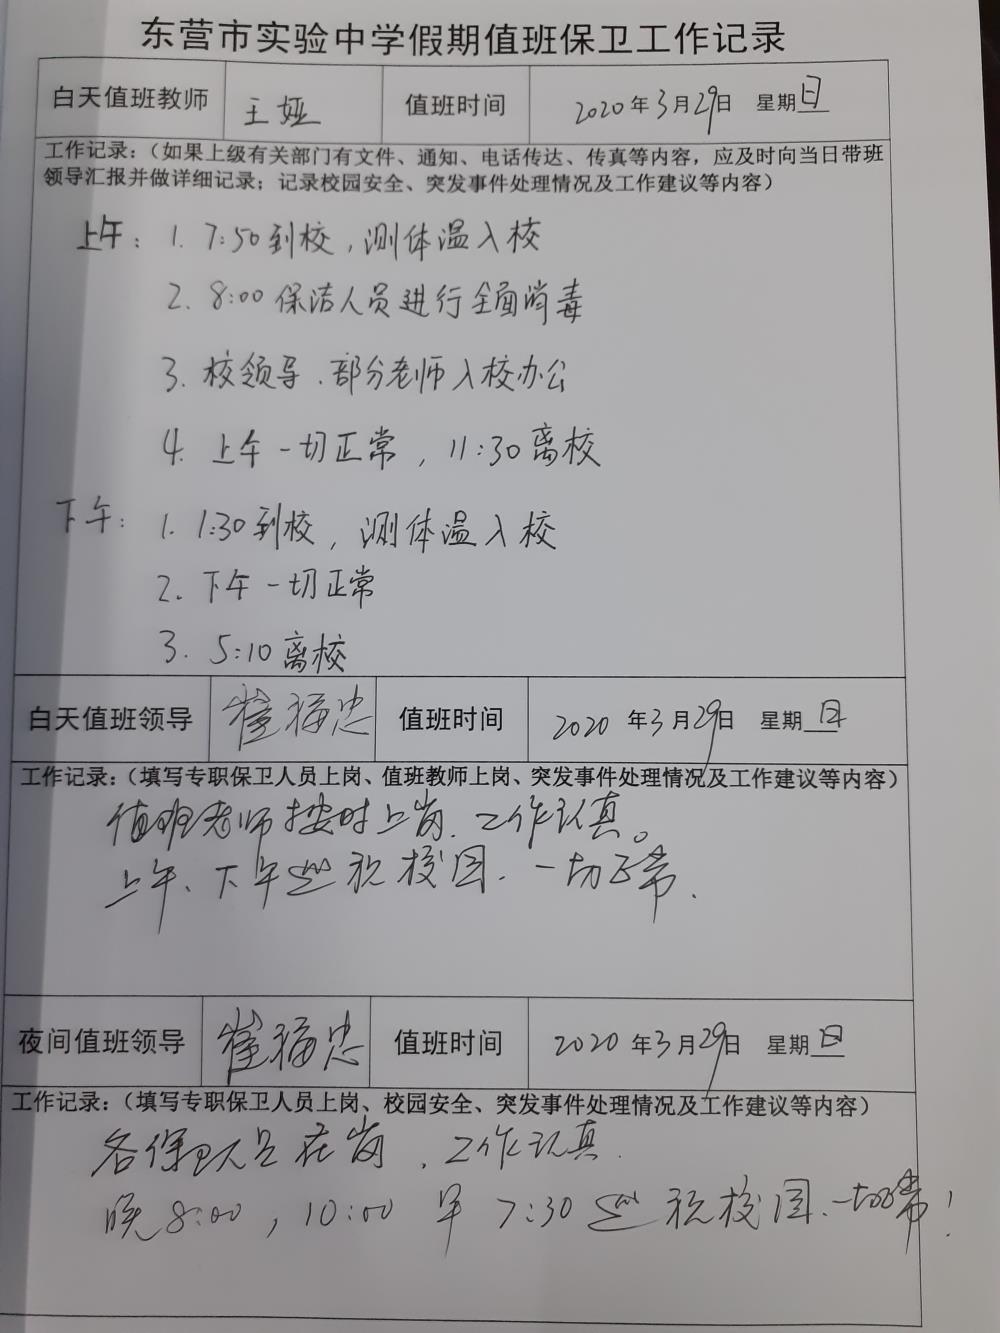 东营市实验中学假期值班保卫工作记录
白天值班教师 王娅 值班时间 2020年3月29日 星期日
工作记录：（如果上级有关部门有文件、通知、电话传达、传真等内容，应及时向当日带班
领导汇报并做详细记录；记录校园安全、突发事件处理情况及工作建议等内容）
上午：1. 7:50到校，测体温入校
2. 8:00保洁人员进行全面消毒
3. 校领导、部分老师入校办公
4. 上午一切正常，11:30离校
下午：1. 1:30到校，测体温入校
2. 下午一切正常
3. 5:10离校
白天值班领导 崔福忠 值班时间 2020年3月29日 星期日
工作记录：（填写专职保卫人员上岗、值班教师上岗、突发事件处理情况及工作建议等内容）
值班老师按时上岗、工作认真。
上午、下午巡视校园、一切正常.
夜间值班领导 崔福忠 值班时间 2020年3月29日 星期日
工作记录：（填写专职保卫人员上岗、校园安全、突发事件处理情况及工作建议等内容）
各保卫人员在岗、工作认真.
晚8:00，10:00 早7:30巡视校园、一切正常！